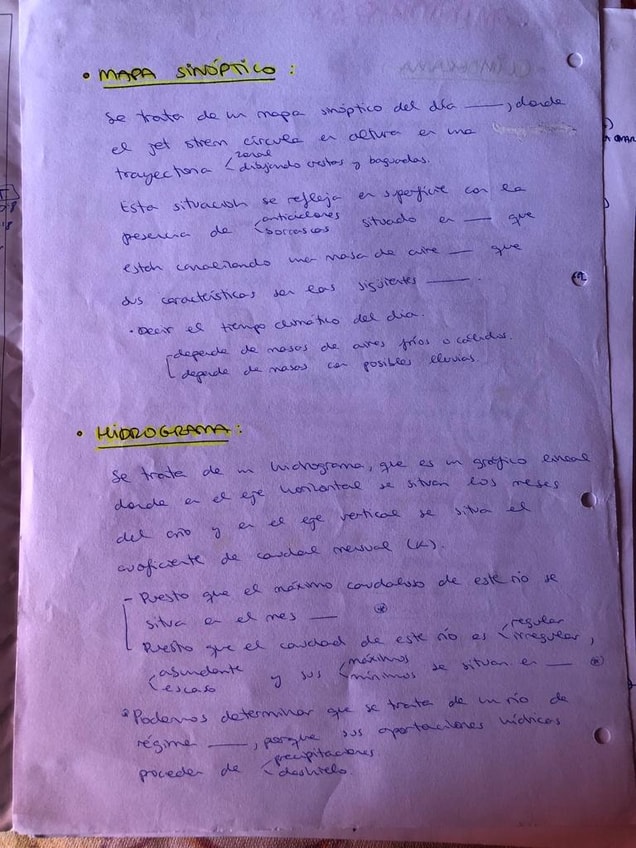 • MAPA SINÓPTICO:
Se trata de un mapa sinóptico del día ___, donde
el jet strem circula en altura en una
trayectoria < zonal
dibujando crestas y baguadas.
Esta situación se refleja en superficie con la
presencia de < anticiclones
borrascas situado en ___ que
están canalizando una masa de aire ___ que
sus características son las siguientes ___.
· Decir el tiempo climático del día.
depende de masas de aires fríos o cálidos.
depende de masas con posibles lluvias.
• HIDROGRAMA:
Se trata de un hidrograma, que es un gráfico lineal
donde en el eje horizontal se sitúan los meses
del año y en el eje vertical se sitúa el
coeficiente de caudal mensual (K).
- Puesto que el máximo caudaloso de este río se
sitúa en el mes ___ *
Puesto que el caudad de este río es < regular
irregular,
< abundante
escaso y sus < máximos
mínimos se sitúan en ___ *
* Podemos determinar que se trata de un río de
régimen ___, porque sus aportaciones hídricas
proceden de < precipitaciones
deshielo.